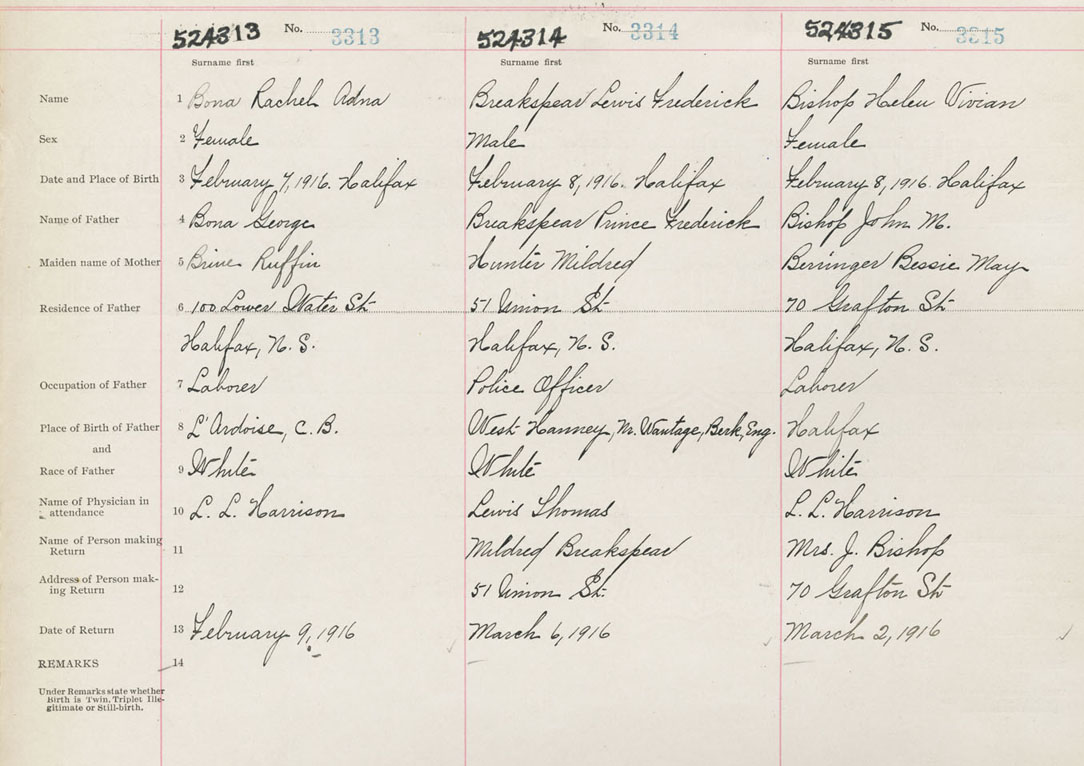 524313 No. 3313 524314 No. 3314 524315 No. 3315
Surname first Surname first Surname first
Name 1 Bona Rachel Adna Breakspear Lewis Frederick Bishop Helen Vivian
Sex 2 Female Male Female
Date and Place of Birth 3 February 7, 1916. Halifax February 8, 1916. Halifax February 8, 1916. Halifax
Name of Father 4 Bona George Breakspear Prince Frederick Bishop John M.
Maiden name of Mother 5 Brine Ruffin Hunter Mildred Berringer Bessie May
Residence of Father 6 100 Lower Water St 51 Union St 70 Grafton St
Halifax, N. S. Halifax, N. S. Halifax, N. S.
Occupation of Father 7 Laborer Police Officer Laborer
Place of Birth of Father 8 L'Ardoise, C. B. West Hanney, Nr. Wantage, Berk, Eng. Halifax
and
Race of Father 9 White White White
Name of Physician in
attendance 10 L. L. Harrison Lewis Thomas L. L. Harrison
Name of Person making
Return 11 Mildred Breakspear Mrs. J. Bishop
Address of Person mak-
ing Return 12 51 Union St. 70 Grafton St
Date of Return 13 February 9, 1916 March 6, 1916 March 2, 1916
REMARKS 14
Under Remarks state whether
Birth is Twin, Triplet Ille-
gitimate or Still-birth.